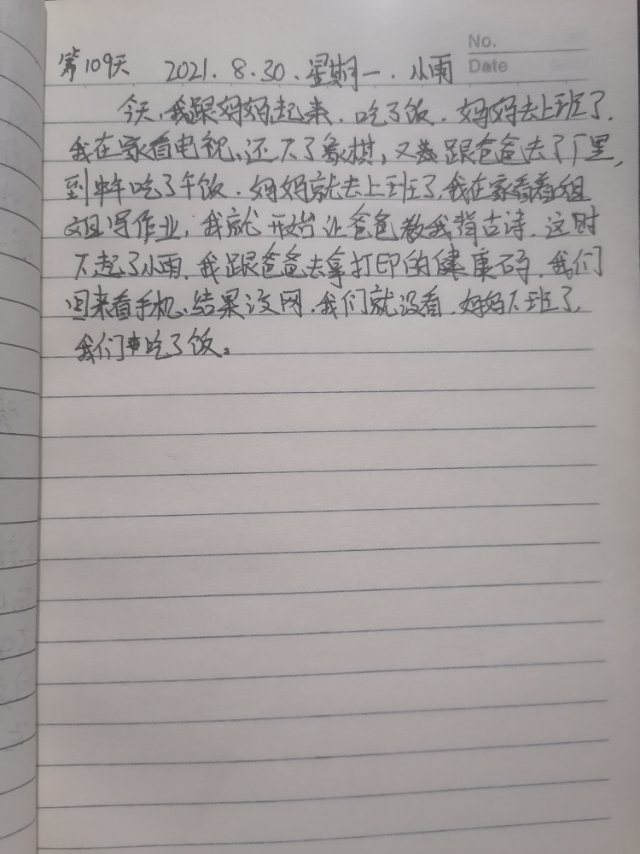 No.
Date
第109天 2021.8.30.星期一.小雨
今天,我跟妈妈起来.吃了饭.妈妈去上班了.
我在家看电视,还下了象棋,又跟爸爸去了厂里,
到中午吃了午饭.妈妈就去上班了,我在家看着姐
姐写作业,我就开始让爸爸教我背古诗.这时
下起了小雨.我跟爸爸去拿打印的健康码,我们
回来看手机、结果没网,我们就没看.妈妈下班了,
我们吃了饭。